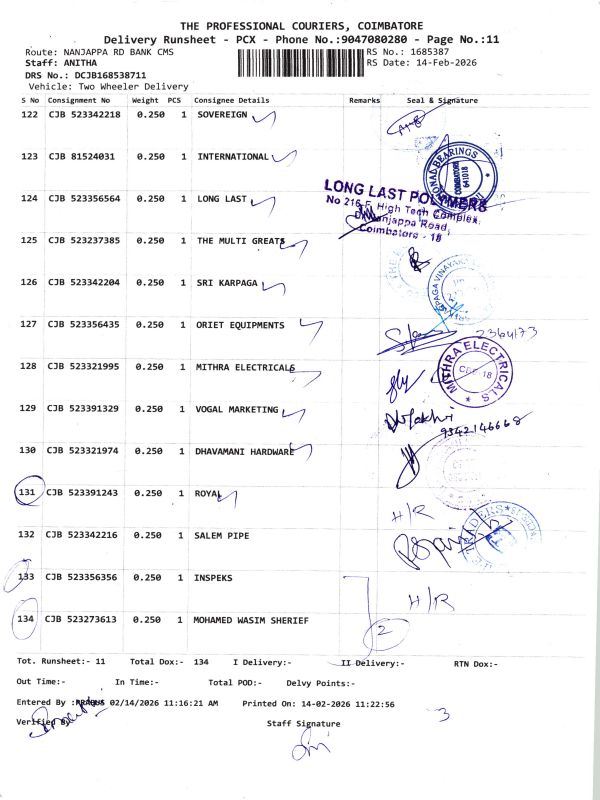 THE PROFESSIONAL COURIERS, COIMBATORE
Delivery Runsheet - PCX - Phone No.:9047080280 - Page No.:11
Route: NANJAPPA RD BANK CMS
RS No.: 1685387
Staff: ANITHA
RS Date: 14-Feb-2026
DRS No.: DCJB168538711
Vehicle: Two Wheeler Delivery
S No Consignment No Weight PCS Consignee Details Remarks Seal & Signature
122 CJB 523342218 0.250 1 SOVEREIGN
123 CJB 81524031 0.250 1 INTERNATIONAL
BEARINGS
COIMBATORE
641018
124 CJB 523356564 0.250 1 LONG LAST
LONG LAST POLYMERS
No 216 F, High Tech Complex,
Nanjappa Road,
Coimbatore - 18
125 CJB 523237385 0.250 1 THE MULTI GREATS
126 CJB 523342204 0.250 1 SRI KARPAGA
127 CJB 523356435 0.250 1 ORIET EQUIPMENTS
128 CJB 523321995 0.250 1 MITHRA ELECTRICALS
MITHRA ELECTRICALS
CBE 18
129 CJB 523391329 0.250 1 VOGAL MARKETING
9342146668
130 CJB 523321974 0.250 1 DHAVAMANI HARDWARE
131 CJB 523391243 0.250 1 ROYAL
H/R
132 CJB 523342216 0.250 1 SALEM PIPE
TRADERS
133 CJB 523356356 0.250 1 INSPEKS
H/R
134 CJB 523273613 0.250 1 MOHAMED WASIM SHERIEF
2
Tot. Runsheet:- 11 Total Dox:- 134 I Delivery:- II Delivery:- RTN Dox:-
Out Time:- In Time:- Total POD:- Delvy Points:-
Entered By : 02/14/2026 11:16:21 AM Printed On: 14-02-2026 11:22:56
3
Verified By
Staff Signature